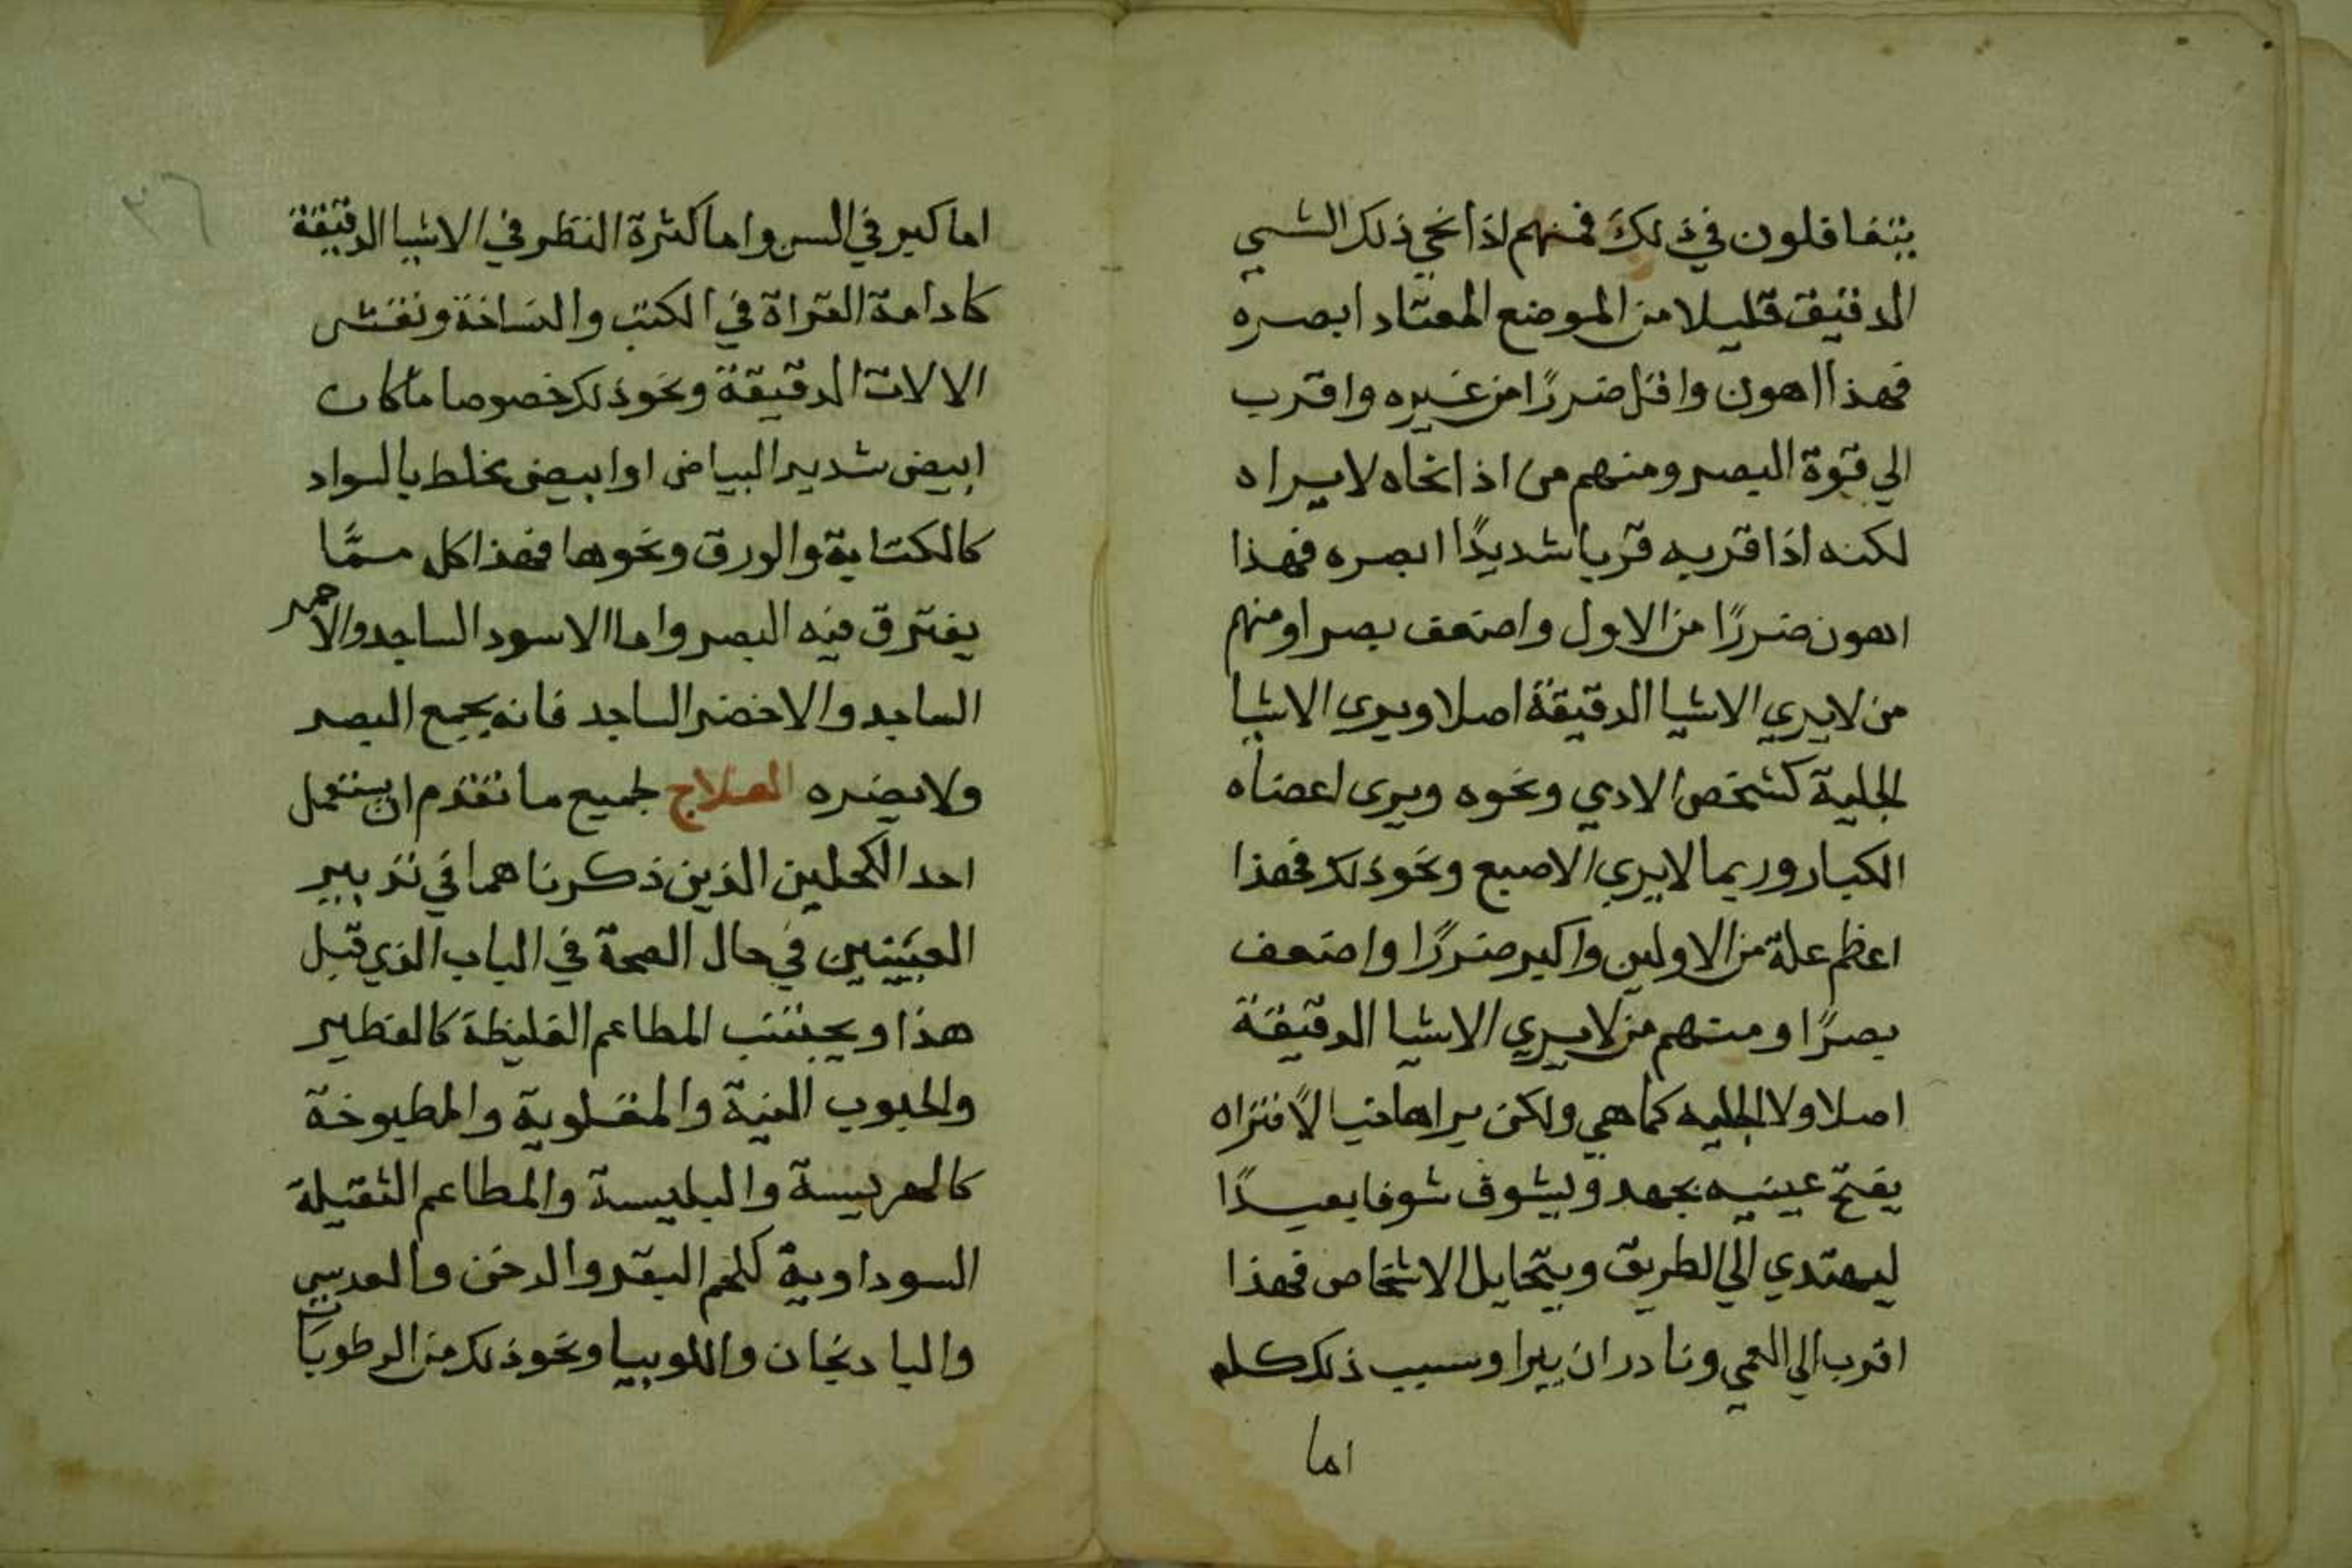 يتفاقلون في ذلك فمنهم اذا نحي ذلك الشي
الدقيق قليلا من الموضع المعتاد ابصره
فهذا اهون واقل ضررًا من غيره واقرب
الي قوة البصر ومنهم من اذا نحاه لا يراه
لكنه اذا قربه قربا شديدًا ابصره فهذا
اهون ضررًا من الاول واضعف بصرا ومنهم
من لا يري الاشيا الدقيقة اصلا ويرى الاشيا
الجلية كشخص الادمي ونحوه ويرى اعضاه
الكبار وربما لا يري الاصبع ونحو ذلك فهذا
اعظم علة من الاولين واكبر ضررًا واضعف
بصرًا ومنهم من لا يري الاشيا الدقيقة
اصلا ولا الجليه كما هي ولكن يراها خيالاً فتراه
يفتح عينيه بجهد ويشوف شوفا بعيدًا
ليهتدي الي الطريق ويتخايل الاشخاص فهذا
اقرب الي العمي ونادر ان يبرا وسبب ذلك كله
اما
٣٦
اما كبر في السن واما كثرة النظر في الاشيا الدقيقة
كادامة القراة في الكتب والنساخة ونقش
الالات الدقيقة ونحو ذلك خصوصا ما كان
ابيض شديد البياض او ابيض يخلط بالسواد
كالكتابة والورق ونحوها فهذا كل ممّا
يفترق فيه البصر واما الاسود الساجد والاحمر
الساجد والاخضر الساجد فانه يجمع البصر
ولا يضره العلاج لجميع ما تقدم ان يستعمل
احد الكحلين الذين ذكرناهما في تدبير
العينين في حال الصحة في الباب الذي قبل
هذا ويجتنب المطاعم الغليظة كالفطير
والحبوب النية والمقلوية والمطبوخة
كالهريسة والبليسة والمطاعم الثقيلة
السوداوية كلحم البقر والدخن والعدس
والبادنجان واللوبيا ونحو ذلك من الرطوبات